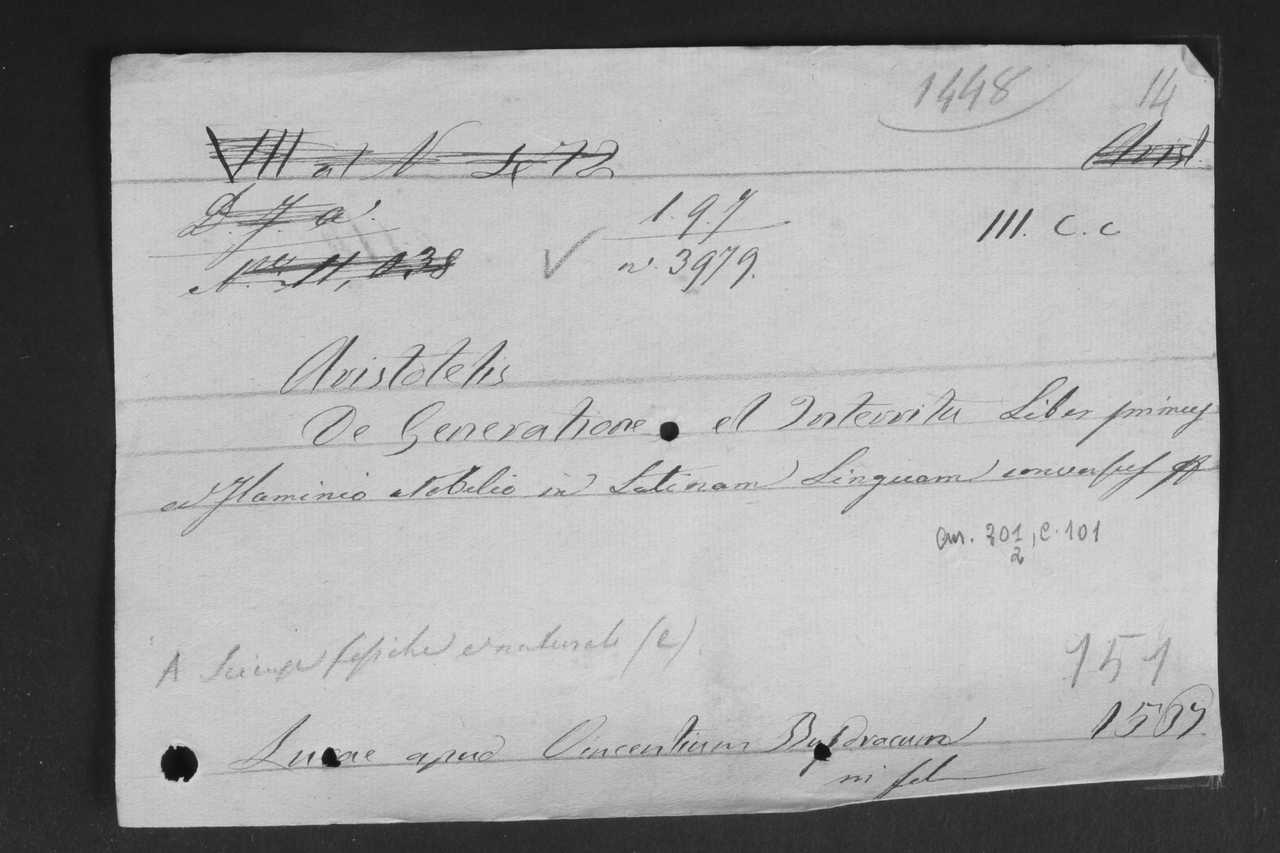 1448 14
VII at N 472 Arist.
D. J. a.
1. 9. 7 III. c. c
N. 11,038 n. 3979.
Aristotelis
De Generatione et Interritu Liber primus
a Flaminio Nobilio in Latinam Linguam conversus
201, c. 101
2
A Scienze fisiche e naturali (e)
151
Lucae apud Vincentium Busdracum 1567.
in fol